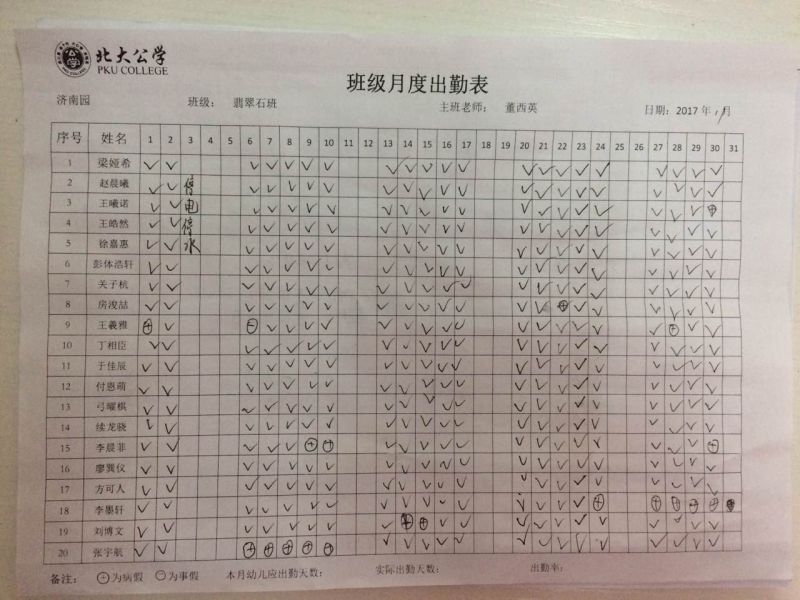 北大公学
PKU COLLEGE
班级月度出勤表
济南园 班级: 翡翠石班 主班老师: 董西英 日期: 2017 年 11月
序号 姓名 1 2 3 4 5 6 7 8 9 10 11 12 13 14 15 16 17 18 19 20 21 22 23 24 25 26 27 28 29 30 31
1 梁娅希
2 赵晨曦 停
3 王曦诺 电
4 王皓然 停
5 徐嘉惠 水
6 彭体浩轩
7 关子杭
8 房浚喆
9 王羲雅
10 丁相臣
11 于佳辰
12 付恩萌
13 弓曜棋
14 续龙骁
15 李晨菲
16 廖巽仪
17 方可人
18 李墨轩
19 刘博文
20 张宇航
备注: ⊕为病假 ⊖为事假 本月幼儿应出勤天数: 实际出勤天数: 出勤率: